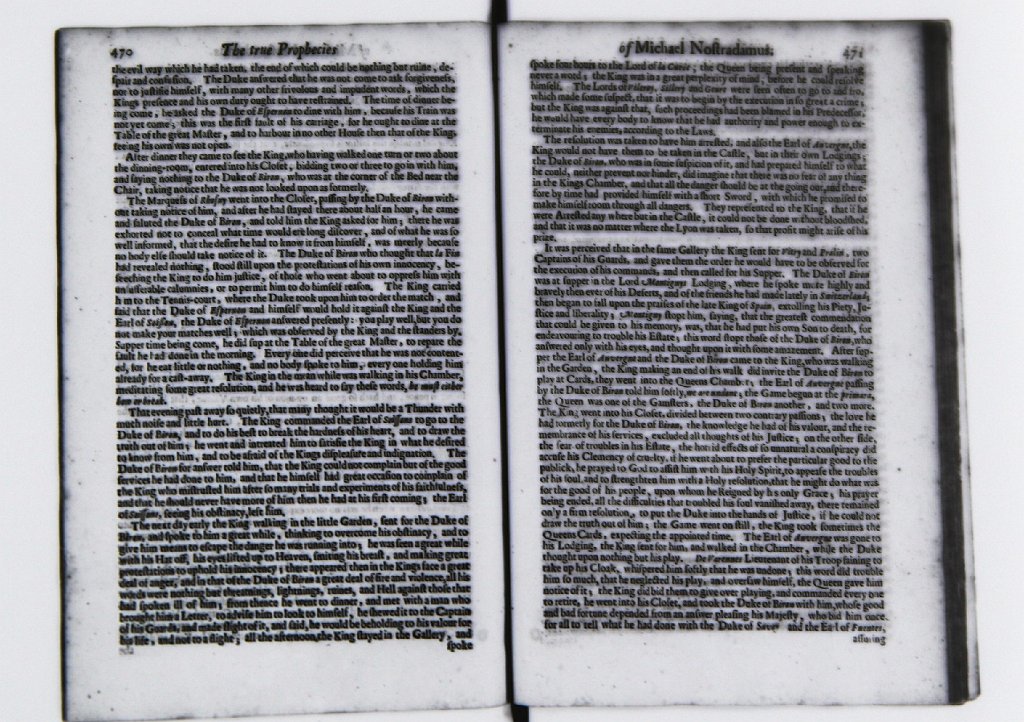 470 The true Prophecies
the evil way which he had taken, the end of which could be nothing but ruine, de-
spair and confusion. The Duke answered that he was not come to ask forgiveness,
nor to justifie himself, with many other frivolous and impudent words, which the
Kings presence and his own duty ought to have restrained. The time of dinner be-
ing come, he asked the Duke of Espernon to dine with him, because his Train was
not yet come; this was the first fault of his carriage, for he ought to dine at the
Table of the great Master, and to harbour in no other House then that of the Kings,
seeing his own was not open.
After dinner they came to see the King, who having walked one turn or two about
the dinning-room, entered into his Closet, bidding two or three to go in with him,
and saying nothing to the Duke of Biron, who was at the corner of the Bed near the
Chair, taking notice that he was not looked upon as formerly.
The Marquess of Rhosny went into the Closet, passing by the Duke of Biron with-
out taking notice of him, and after he had stayed there about half an hour, he came
and saluted the Duke of Biron, and told him the King asked for him; there he was
exhorted not to conceal what time would ere long discover, and of what he was so
well informed, that the desire he had to know it from himself, was meerly because
no body else should take notice of it. The Duke of Biron who thought that la Fin
had revealed nothing, stood still upon the protestations of his own innocency, be-
seeching the King to do him justice, of those who went about to oppress him with
unsufferable calumnies, or to permit him to do himself reason. The King carried
him to the Tennis-court, where the Duke took upon him to order the match, and
said that the Duke of Espernon and himself would hold it against the King and the
Earl of Soissons, the Duke of Espernon answered presently: you play well, but you do
not make your matches well; which was observed by the King and the standers by.
Supper time being come, he did sup at the Table of the great Master, to repare the
fault he had done in the morning. Every one did perceive that he was not content-
ed, for he eat little or nothing, and no body spoke to him, every one holding him
already for a cast-away. The King in the mean while was walking in his Chamber,
meditating some great resolution, and he was heard to say these words, he must either
bow or break.
That evening past away so quietly, that many thought it would be a Thunder with
much noise and little hurt. The King commanded the Earl of Soissons to go to the
Duke of Biron, and to do his best to break the hardness of his heart, and to draw the
truth out of him; he went and intreated him to satisfie the King in what he desired
to know from him, and to be afraid of the Kings displeasure and indignation. The
Duke of Biron for answer told him, that the King could not complain but of the good
services he had done to him, and that he himself had great occasion to complain of
the King who mistrusted him after so many trials and experiments of his faithfulness,
and that he should never have more of him then he had at his first coming; the Earl
of Soissons, seeing his obstinacy, left him.
The next day early the King walking in the little Garden, sent for the Duke of
Biron, and spoke to him a great while, thinking to overcome his obstinacy, and to
give him means to escape the danger he was running into; he was seen a great while
with his Hat off, his eyes lifted up to Heaven, smiting his breast, and making great
protestations to uphold his innocency; there appeared then in the Kings face a great
deal of anger; and in that of the Duke of Biron a great deal of fire and violence, all his
words were nothing but threatnings, lightnings, ruines, and Hell against those that
had spoken ill of him; from thence he went to dinner, and met with a man who
brought him a Letter, to advise him to look to himself, he shewed it to the Captain
of his Guards, and made slight of it, and said, he would be beholding to his valour for
his life, and not to a flight; all the afternoon, the King stayed in the Gallery, and
spoke
of Michael Nostradamus. 471
spoke four hours to the Lord of la Curée, the Queen being present and speaking
never a word; the King was in a great perplexity of mind, before he could resolve
himself. The Lords of Villeroy, Sillery and Geure were seen often to go to and fro,
which made some suspect, that it was to begin by the execution in so great a crime;
but the King was against that, such proceedings had been blamed in his Predecessor,
he would have every body to know that he had authority and power enough to ex-
terminate his enemies, according to the Laws.
The resolution was taken to have him arrested, and also the Earl of Auvergne, the
King would not have them to be taken in the Castle, but in their own Lodgings;
the Duke of Biron, who was in some suspicion of it, and had prepared himself to what
he could, neither prevent nor hinder, did imagine that there was no fear of any thing
in the Kings Chamber, and that all the danger should be at the going out, and there-
fore by time had provided himself with a short Sword, with which he promised to
make himself room through all dangers. They represented to the King, that if he
were Arrested any where but in the Castle, it could not be done without bloodshed,
and that it was no matter where the Lyon was taken, so that profit might arise of his
prize.
It was perceived that in the same Gallery the King sent for Vitry and Pralin, two
Captains of his Guards, and gave them the order he would have to be observed for
the execution of his commands, and then called for his Supper. The Duke of Biron
was at supper in the Lord Montignys Lodging, where he spoke more highly and
bravely then ever of his Deserts, and of the friends he had made lately in Switzerland,
then began to fall upon the praises of the late King of Spain, extolling his Piety, Ju-
stice and liberality; Montigny stopt him, saying, that the greatest commendation
that could be given to his memory, was, that he had put his own Son to death, for
endeavouring to trouble his Estate; this word stopt those of the Duke of Biron, who
answered only with his eyes, and thought upon it with some amazement. After sup-
per the Earl of Auvergne and the Duke of Biron came to the King, who was walking
in the Garden, the King making an end of his walk did invite the Duke of Biron to
play at Cards, they went into the Queens Chamber, the Earl of Auvergne passing
by the Duke of Biron told him softly, we are undone; the Game began at the primera,
the Queen was one of the Gamsters, the Duke of Biron another, and two more.
The King went into his Closet, divided between two contrary passions; the love he
had formerly for the Duke of Biron, the knowledge he had of his valour, and the re-
membrance of his services, excluded all thoughts of his Justice; on the other side,
the fear of troubles in his Estate, the horrid effects of so unnatural a conspiracy did
accuse his Clemency of cruelty, if he went about to prefer the particular good to the
publick, he prayed to God to assist him with his Holy Spirit, to appease the troubles
of his soul, and to strengthen him with a Holy resolution, that he might do what was
for the good of his people, upon whom he Reigned by his only Grace; his prayer
being ended, all the difficulties that troubled his soul vanished away, there remained
only a firm resolution, to put the Duke into the hands of Justice, if he could not
draw the truth out of him; the Game went on still, the King took sometimes the
Queens Cards, expecting the appointed time. The Earl of Auvergne was gone to
his Lodging, the King sent for him, and walked in the Chamber, while the Duke
thought upon nothing but his play. De Varennes Lieutenant of his Troop faining to
take up his Cloak, whispered him softly that he was undone; this word did trouble
him so much, that he neglected his play, and oversaw himself, the Queen gave him
notice of it; the King did bid them to give over playing, and commanded every one
to retire, he went into his Closet, and took the Duke of Biron with him, whose good
and bad fortune depended from an answer pleasing his Majesty, who bid him once
for all to tell what he had done with the Duke of Savoy and the Earl of Fuentes,
assuring